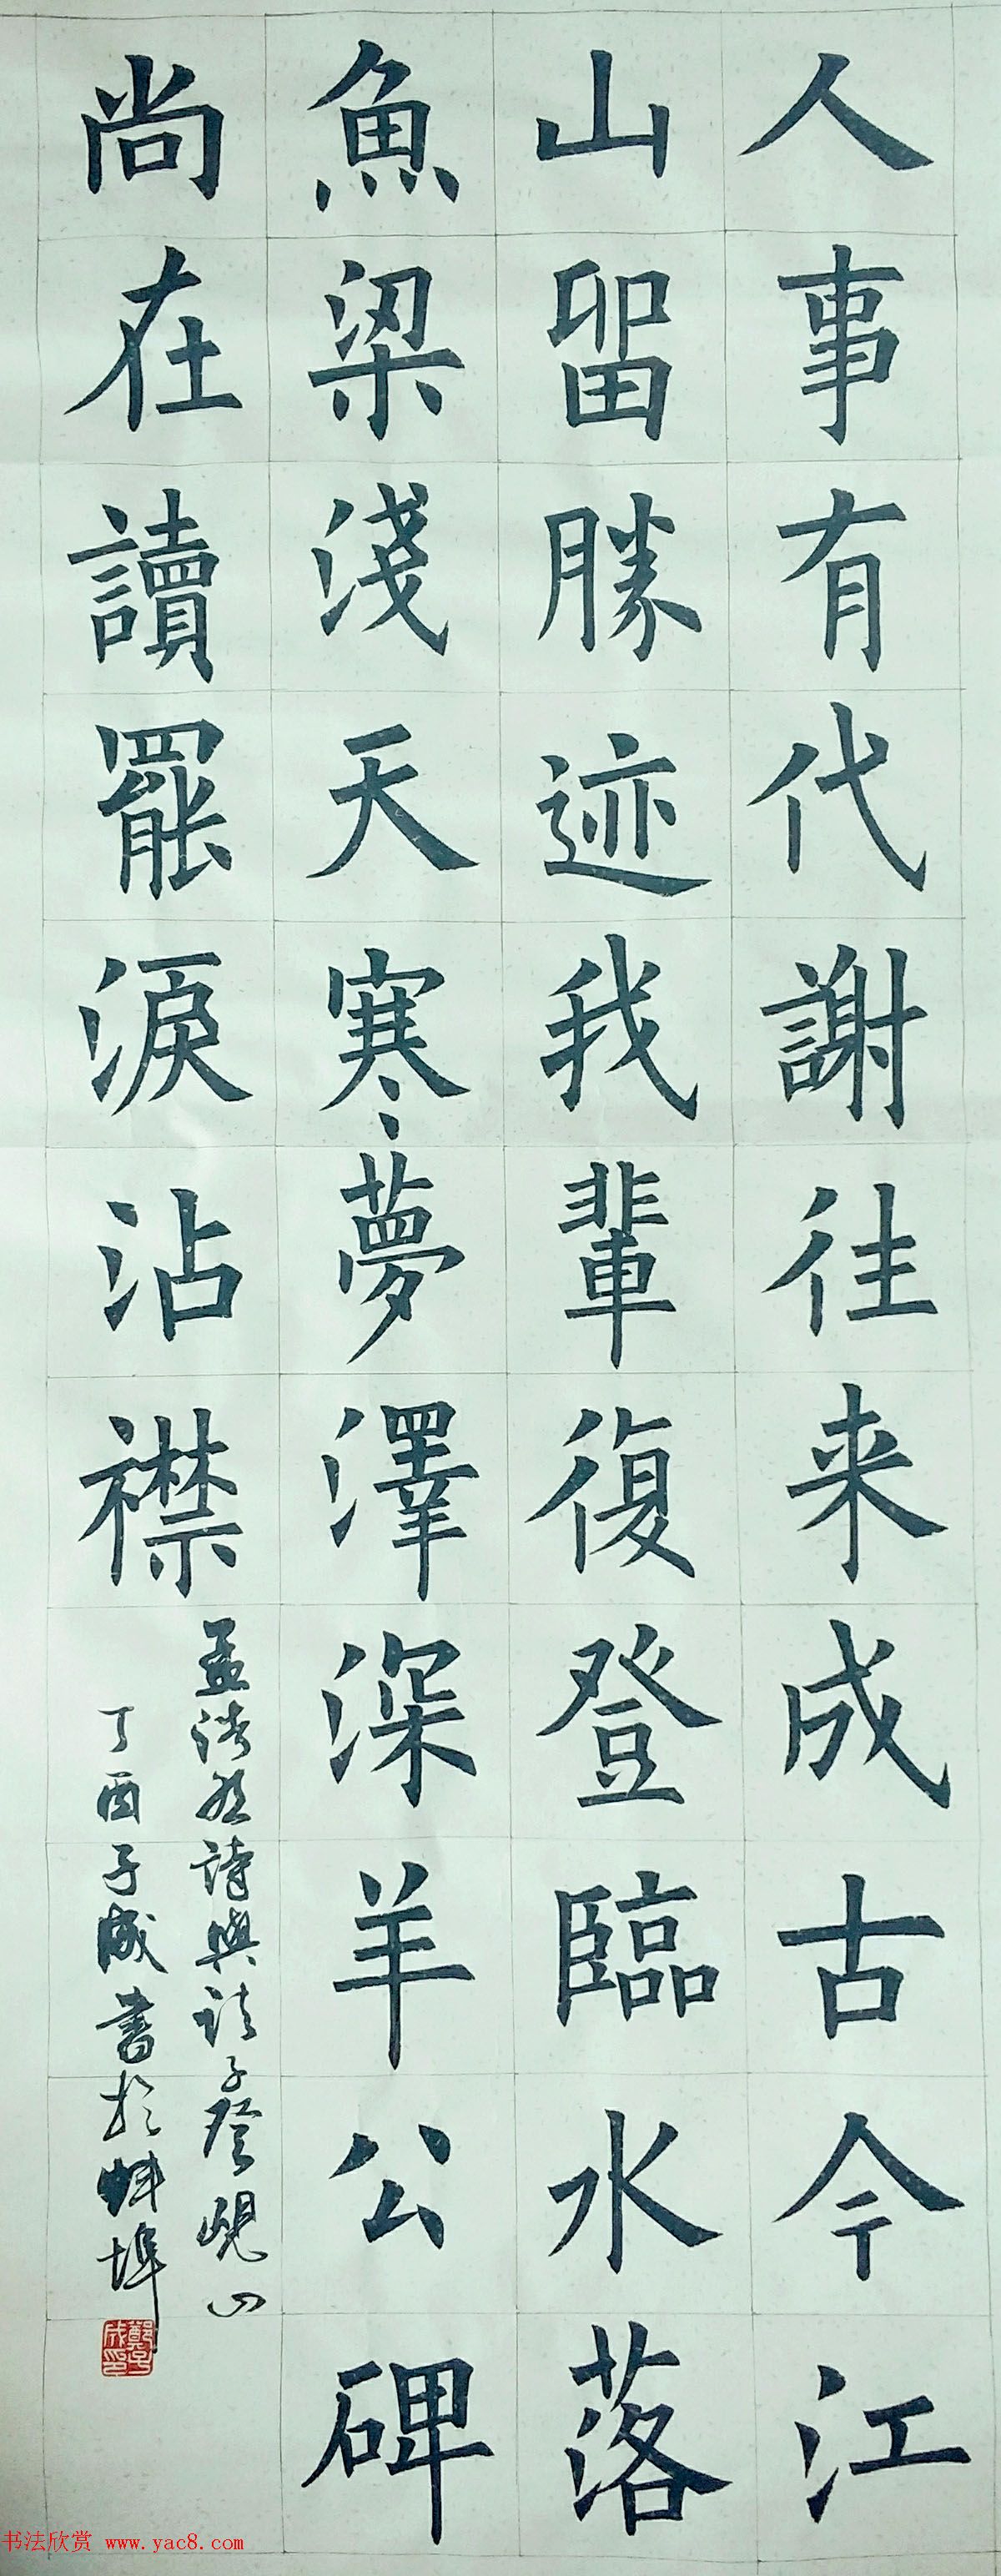 人事有代謝往来成古今江
山留勝迹我輩復登臨水落
魚梁淺天寒夢澤深羊公碑
尚在讀罷淚沾襟
孟浩然詩與諸子登峴山
丁酉子成書於蚌埠
鄭子成印
书法欣赏 www.yac8.com